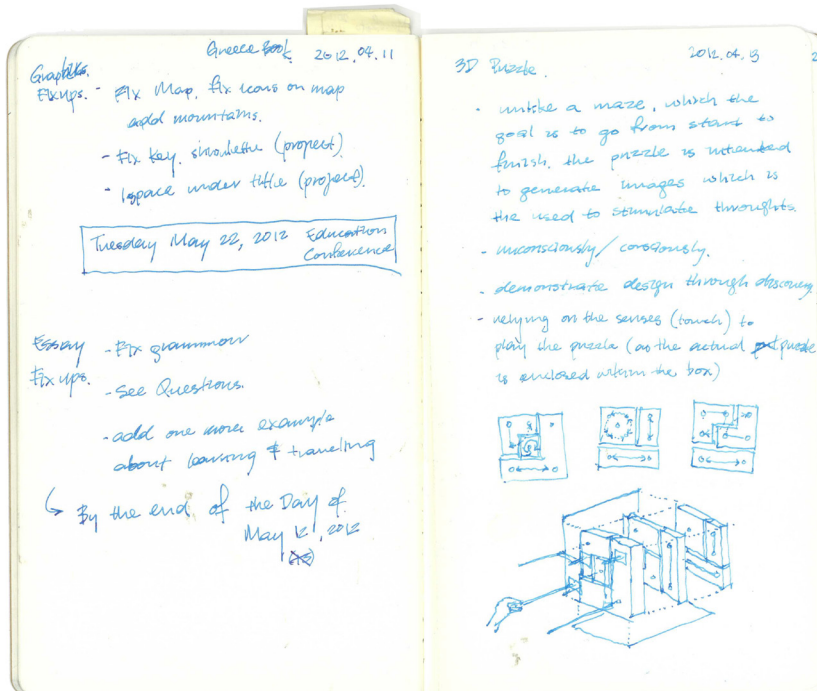 Greece Book 2012.04.11
Graphics.
Fixups. - Fix Map, fix icons on map
add mountains.
- Fix key, sihoulette (propert)
- 1space under title (project).
Tuesday May 22, 2012 Education
Conference
Essay - Fix grammar
Fix ups.
- See Questions.
- add one more example
about learning & traveling
↳ By the end of the Day of
May 12, 2012
3D Puzzle. 2012.04.13
- unlike a maze, which the
goal is to go from start to
finish, the puzzle is intended
to generate images which is
the used to stimulate thoughts.
- unconsciously/consciously.
- demonstrate design through discovery
- relying on the senses (touch) to
play the puzzle (as the actual puzzle
is enclosed within the box)